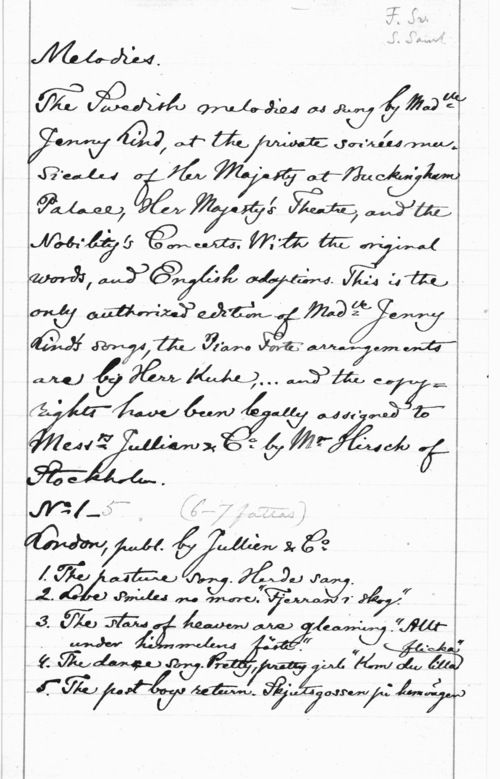 F. Sv.
S. Saml.
Melodies.
The Swedish melodies as sung by Mad^lle
Jenny Lind, at the private soirées mu-
sicales of Her Majesty at Buckingham
Palace, Her Majesty's Theatre, and the
Nobility's Concerts. With the original
words, and English adaptions. This is the
only authorized edition of Mad^lle Jenny
Lind's songs, the Piano Forte arrangements
are by Herr Kuhe,... and the copy=
rights have been legally assigned to
Mess^rs Jullien & C^o by M^r Hirsch of
Stockholm.
N^o 1-5. (6-7 fattas)
London, publ. by Jullien & C^o
1. The pasture song. Herde sang.
2. Love smiles no more. "Fjerran i skog."
3. The stars of heaven are gleaming. "Allt
under himmelens fäste."
4. The dance song. Pretty, pretty girls "Kom du lilla flicka"
5. The post boys return. Skjutsgossen på hemvägen